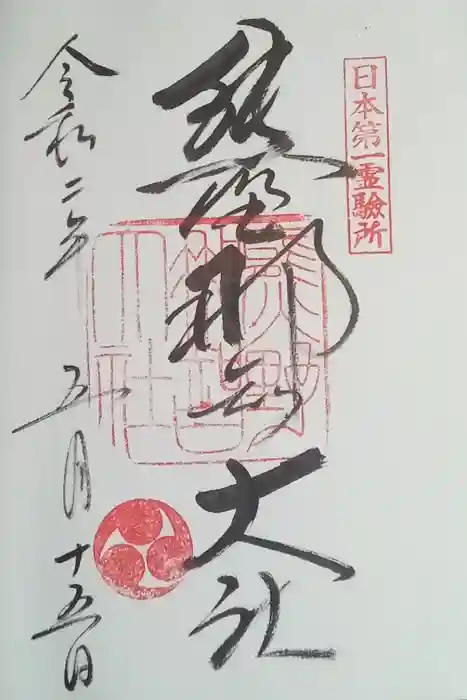 日本第一霊驗所
熊野那智大社
令和二年五月十五日